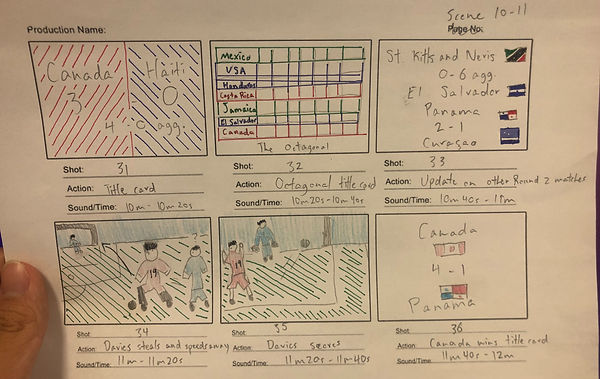 Scene 10-11
Production Name:
Page No:
Canada
3
4
Haiti
0
0 agg.
Mexico
USA
Honduras
Costa Rica
Jamaica
El Salvador
Canada
The Octagonal
St. Kitts and Nevis
0-6 agg.
El Salvador
Panama
2-1
Curaçao
Shot: 31
Action: Title card
Sound/Time: 10m - 10m20s
Shot: 32
Action: Octagonal title card
Sound/Time: 10m20s - 10m40s
Shot: 33
Action: Update on other Round 2 matches
Sound/Time: 10m40s - 11m
19
19
Canada
4-1
Panama
Shot: 34
Action: Davies steals and speeds away
Sound/Time: 11m - 11m20s
Shot: 35
Action: Davies scores
Sound/Time: 11m20s - 11m40s
Shot: 36
Action: Canada wins title card
Sound/Time: 11m40s - 12m